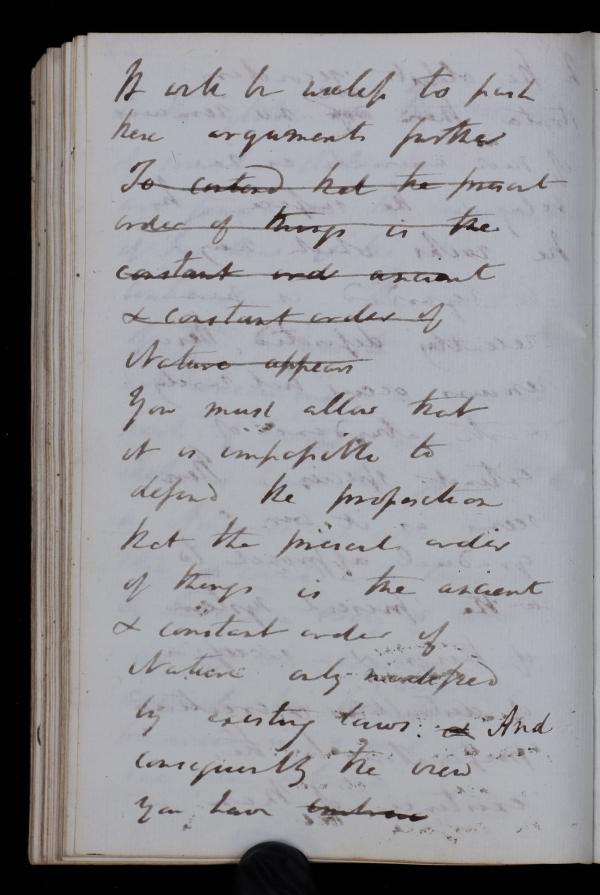 It will be useless to push
these arguments further
To contend that the present
order of things is the
constant order ancient
& constant order of
Nature appears
You must allow that
it is impossible to
defend the proposition
that the present order
of things is the ancient
& constant order of
Nature only modified
by existing laws: & And
consequently the view
you have embrace